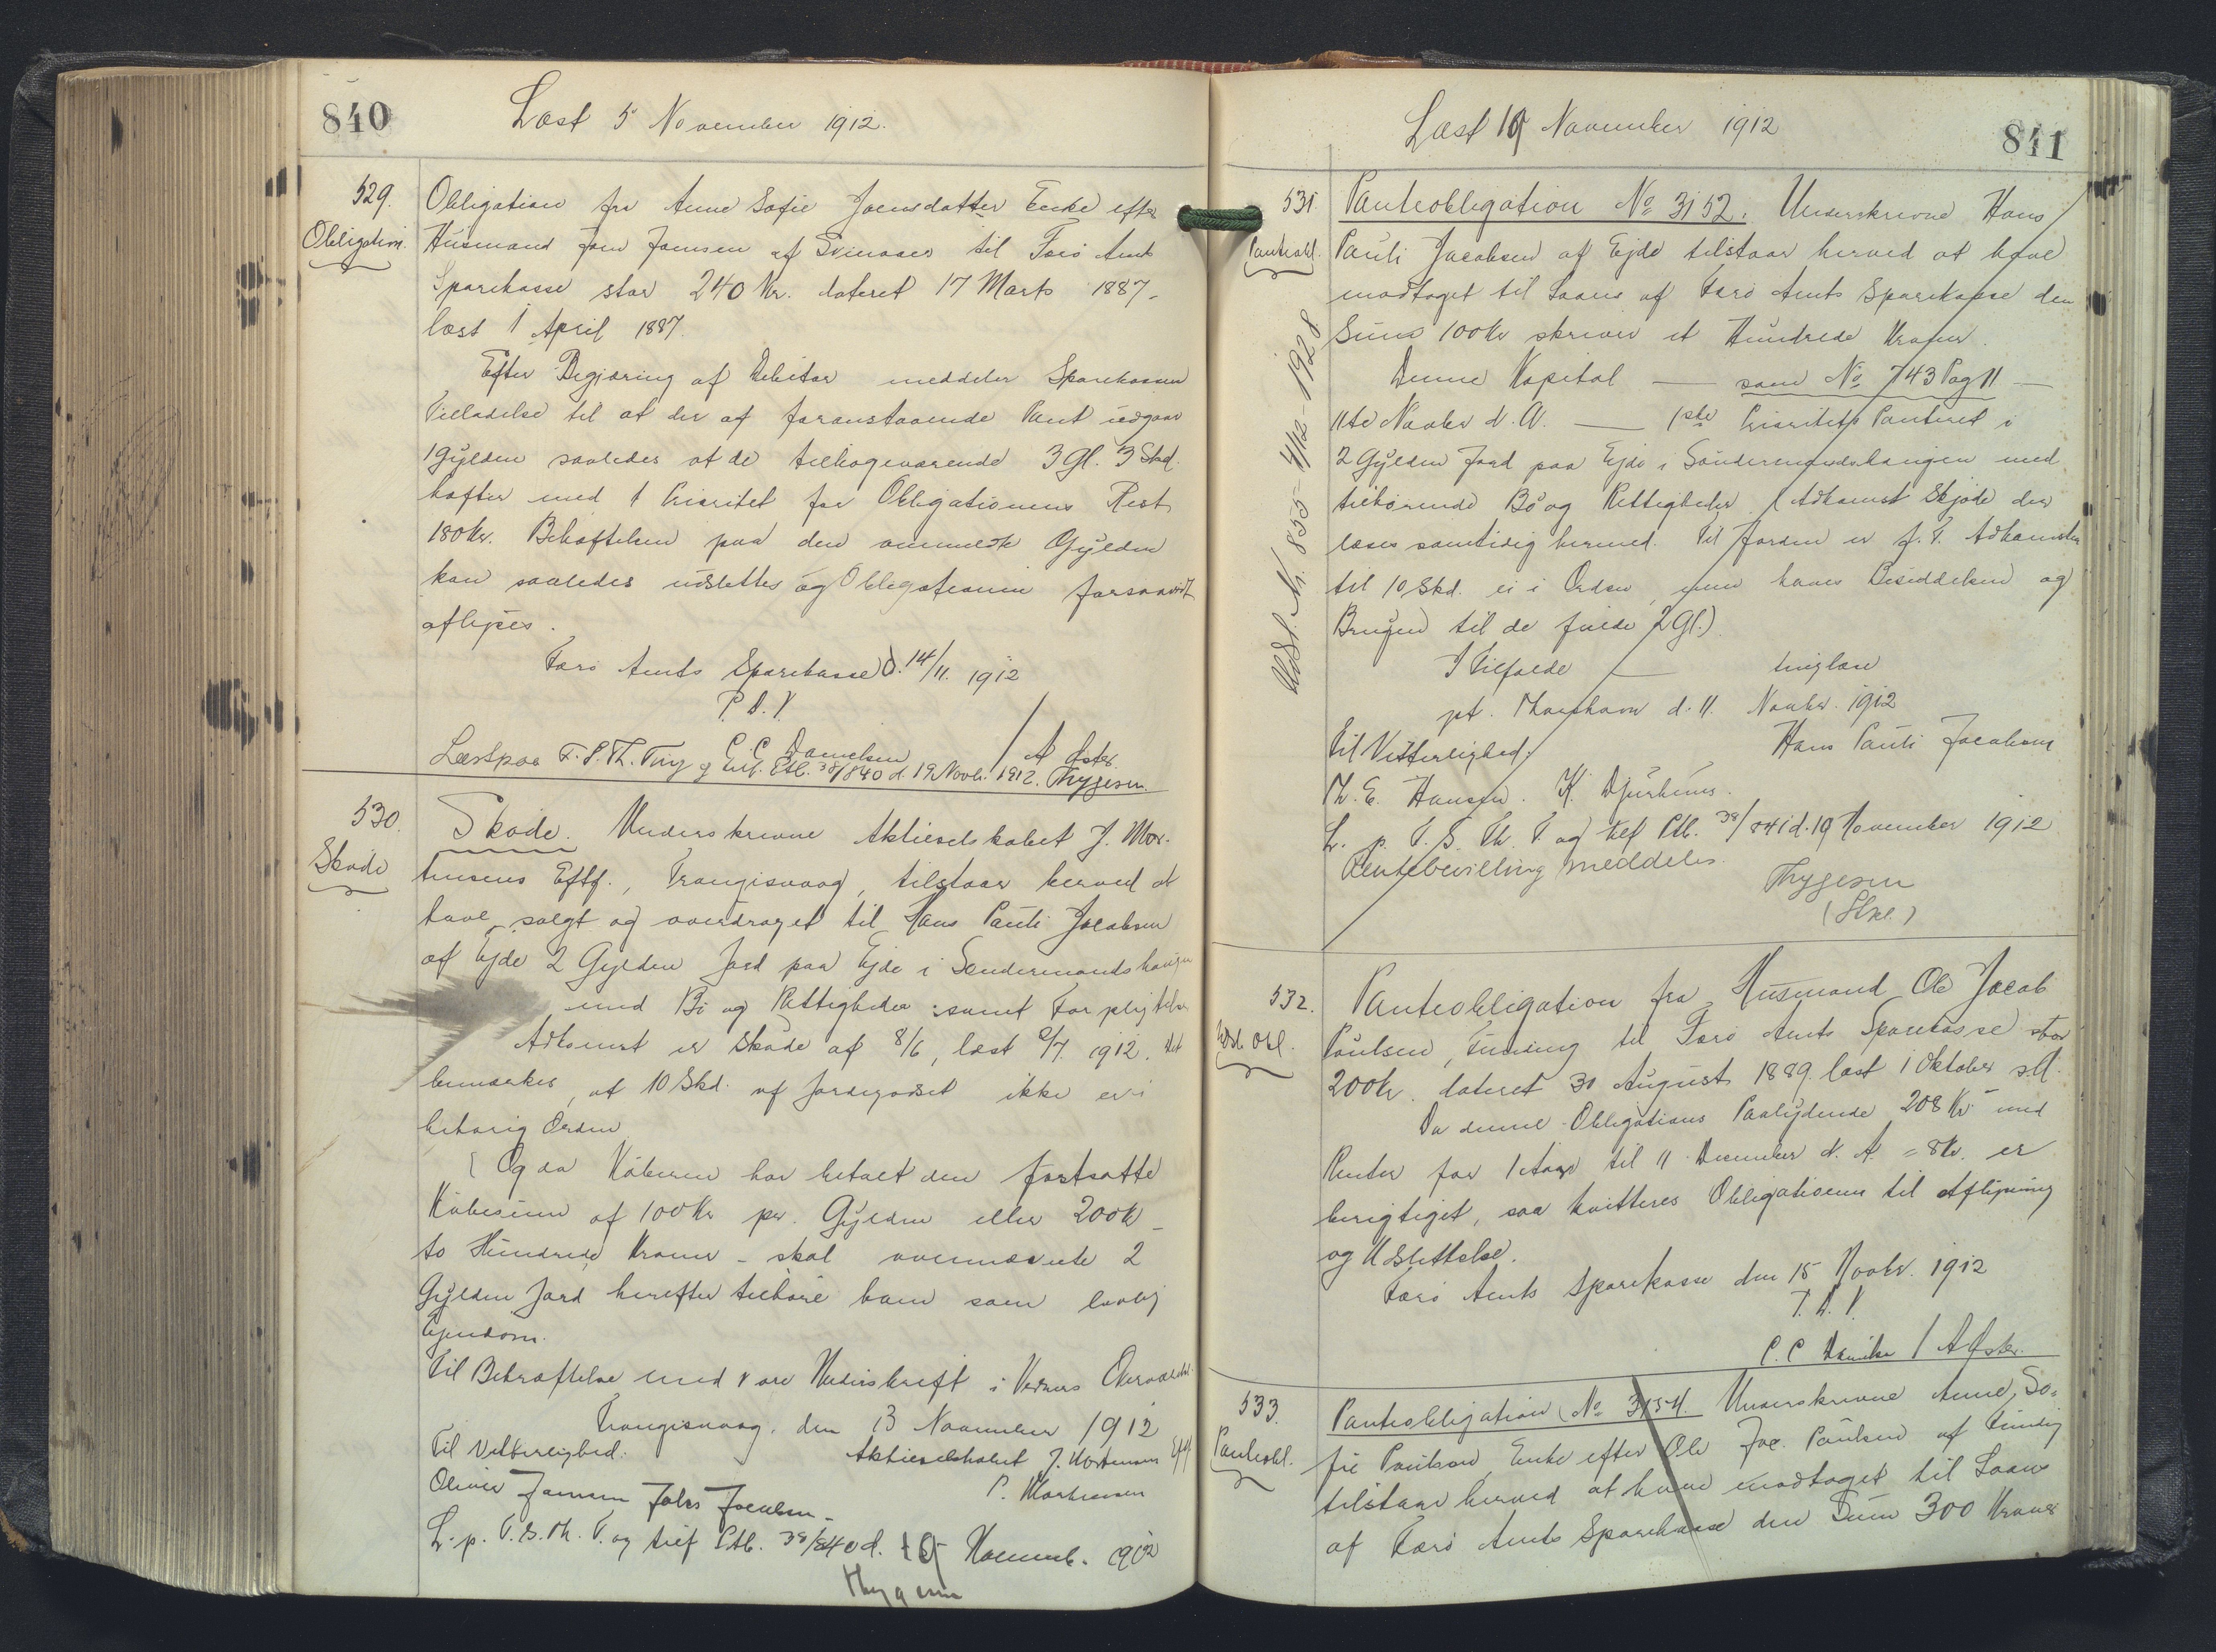 840
Læst 5 November 1912.
529.
Obligation.
Obligation fra Anne Sofie Joensdatter Enke efter
Husmand Joen Joensen af Svinaaer til Færö Amts
Sparekasse stor 240 Kr. dateret 17 Marts 1887.
læst 1 April 1887.
Efter Begjæring af Debitor meddeler Sparekassen
Tilladelse til at der af foranstaaende Pant udgaar
1 Gylden saaledes at de tilbageværende 3 Gl. 3 Skd.
hæfter med 1 Prioritet for Obligationens Rest
180 Kr. Behæftelsen paa den ommeldte Gylden
kan saaledes udslettes og Obligationen forsaavidt
aflyses.
Færö Amts Sparekasse d. 14/11. 1912
P. D. V.
C. C. Danielsen / A Öster.
Læst paa F. S. Th. Ting og Ref. Ptb. 38/840 d. 19 Novb. 1912. Thygesen.
530.
Sköde
Sköde. Underskrevne Aktieselskabet J. Mor-
tensens Eftf., Trangisvaag, tilstaar herved at
have solgt og overdraget til Hans Pauli Jacobsen
af Ejde 2 Gylden Jord paa Ejde i Söndermandshaugen
med Bö og Rettigheder samt Forpligtelser
Adkomst er Sköde af 8/6, læst 2/7 1912. Det
bemærkes, at 10 Skd. af Jordegodset ikke er i
behörig Orden
Og da Köberen har betalt den fastsatte
Köbesum af 100 Kr per. Gylden eller 200 Kr -
to Hundrede Kroner - skal ovennævnte 2
Gylden Jord herefter tilhöre ham som lovlig
Ejendom.
Til Bekræftelse med vore Underskrift i Vidners Overværelse.
Trangisvaag, den 13 November 1912
Til Vitterlighed.
Aktieselskabet J. Mortensens Eftf
Oliver Joensen Johs Jacobsen
P. Mortensen
L. p. F. S. Th. T. og tref Ptb. 38/840 d. 19 Novemb. 1912
Thygesen
Læst 19 November 1912
841
531.
Panteobl.
Udsl. Nr. 855 - 4/12 - 1928
Panteobligation No 3152. Underskrevne Hans
Pauli Jacobsen af Ejde tilstaar herved at have
modtaget til Laans af Færö Amts Sparekasse den
Sum 100 Kr skriver et Hundrede Kroner.
Denne Kapital — som No 743 Pag 11 —
11te Novbr d. A. — 1ste Prioritets Panteret i
2 Gylden Jord paa Ejde i Söndermandshaugen med
tilhörende Bö og Rettigheder (Adkomst Sköde der
læses samtidig hermed. Til Jorden er f. T. Adkomsten
til 10 Skd. ei i Orden, men haves Besiddelsen og
Brugen til de fulde 2 Gl.)
I Tilfælde — tinglæse
pt. Thorshavn d. 11. Novbr. 1912
Til Vitterlighed.
Hans Pauli Jacobsen
Th. E. Hansen. K. Djurhuus.
L. p. F. S. Th. T og Ref Ptb. 38/841 d. 19 November 1912
Rentebevilling meddeles.
Thygesen
(Stpl.)
532.
Udsl. Obl.
Panteobligation fra Husmand Ole Jacob
Poulsen, Funding til Færö Amts Sparekasse stor
200 Kr. dateret 30 August 1889. læst 1 Oktober s. A.
Da denne Obligations Paalydende 208 Kr med
Renter for 1 Aar til 11 December d. A. = 8 Kr. er
berigtiget, saa kvitteres Obligationen til Aflysning
og Udslettelse.
Færö Amts Sparekasse den 15 Novbr. 1912
P. D. V.
C. C Danielsen / A Öster.
533.
Panteobl.
Panteobligation No 3154. Underskrevne Anne So-
fie Poulsen, Enke efter Ole Jac. Poulsen af Funding
tilstaar herved at have modtaget til Laans
af Færö Amts Sparekasse den Sum 300 Kroner